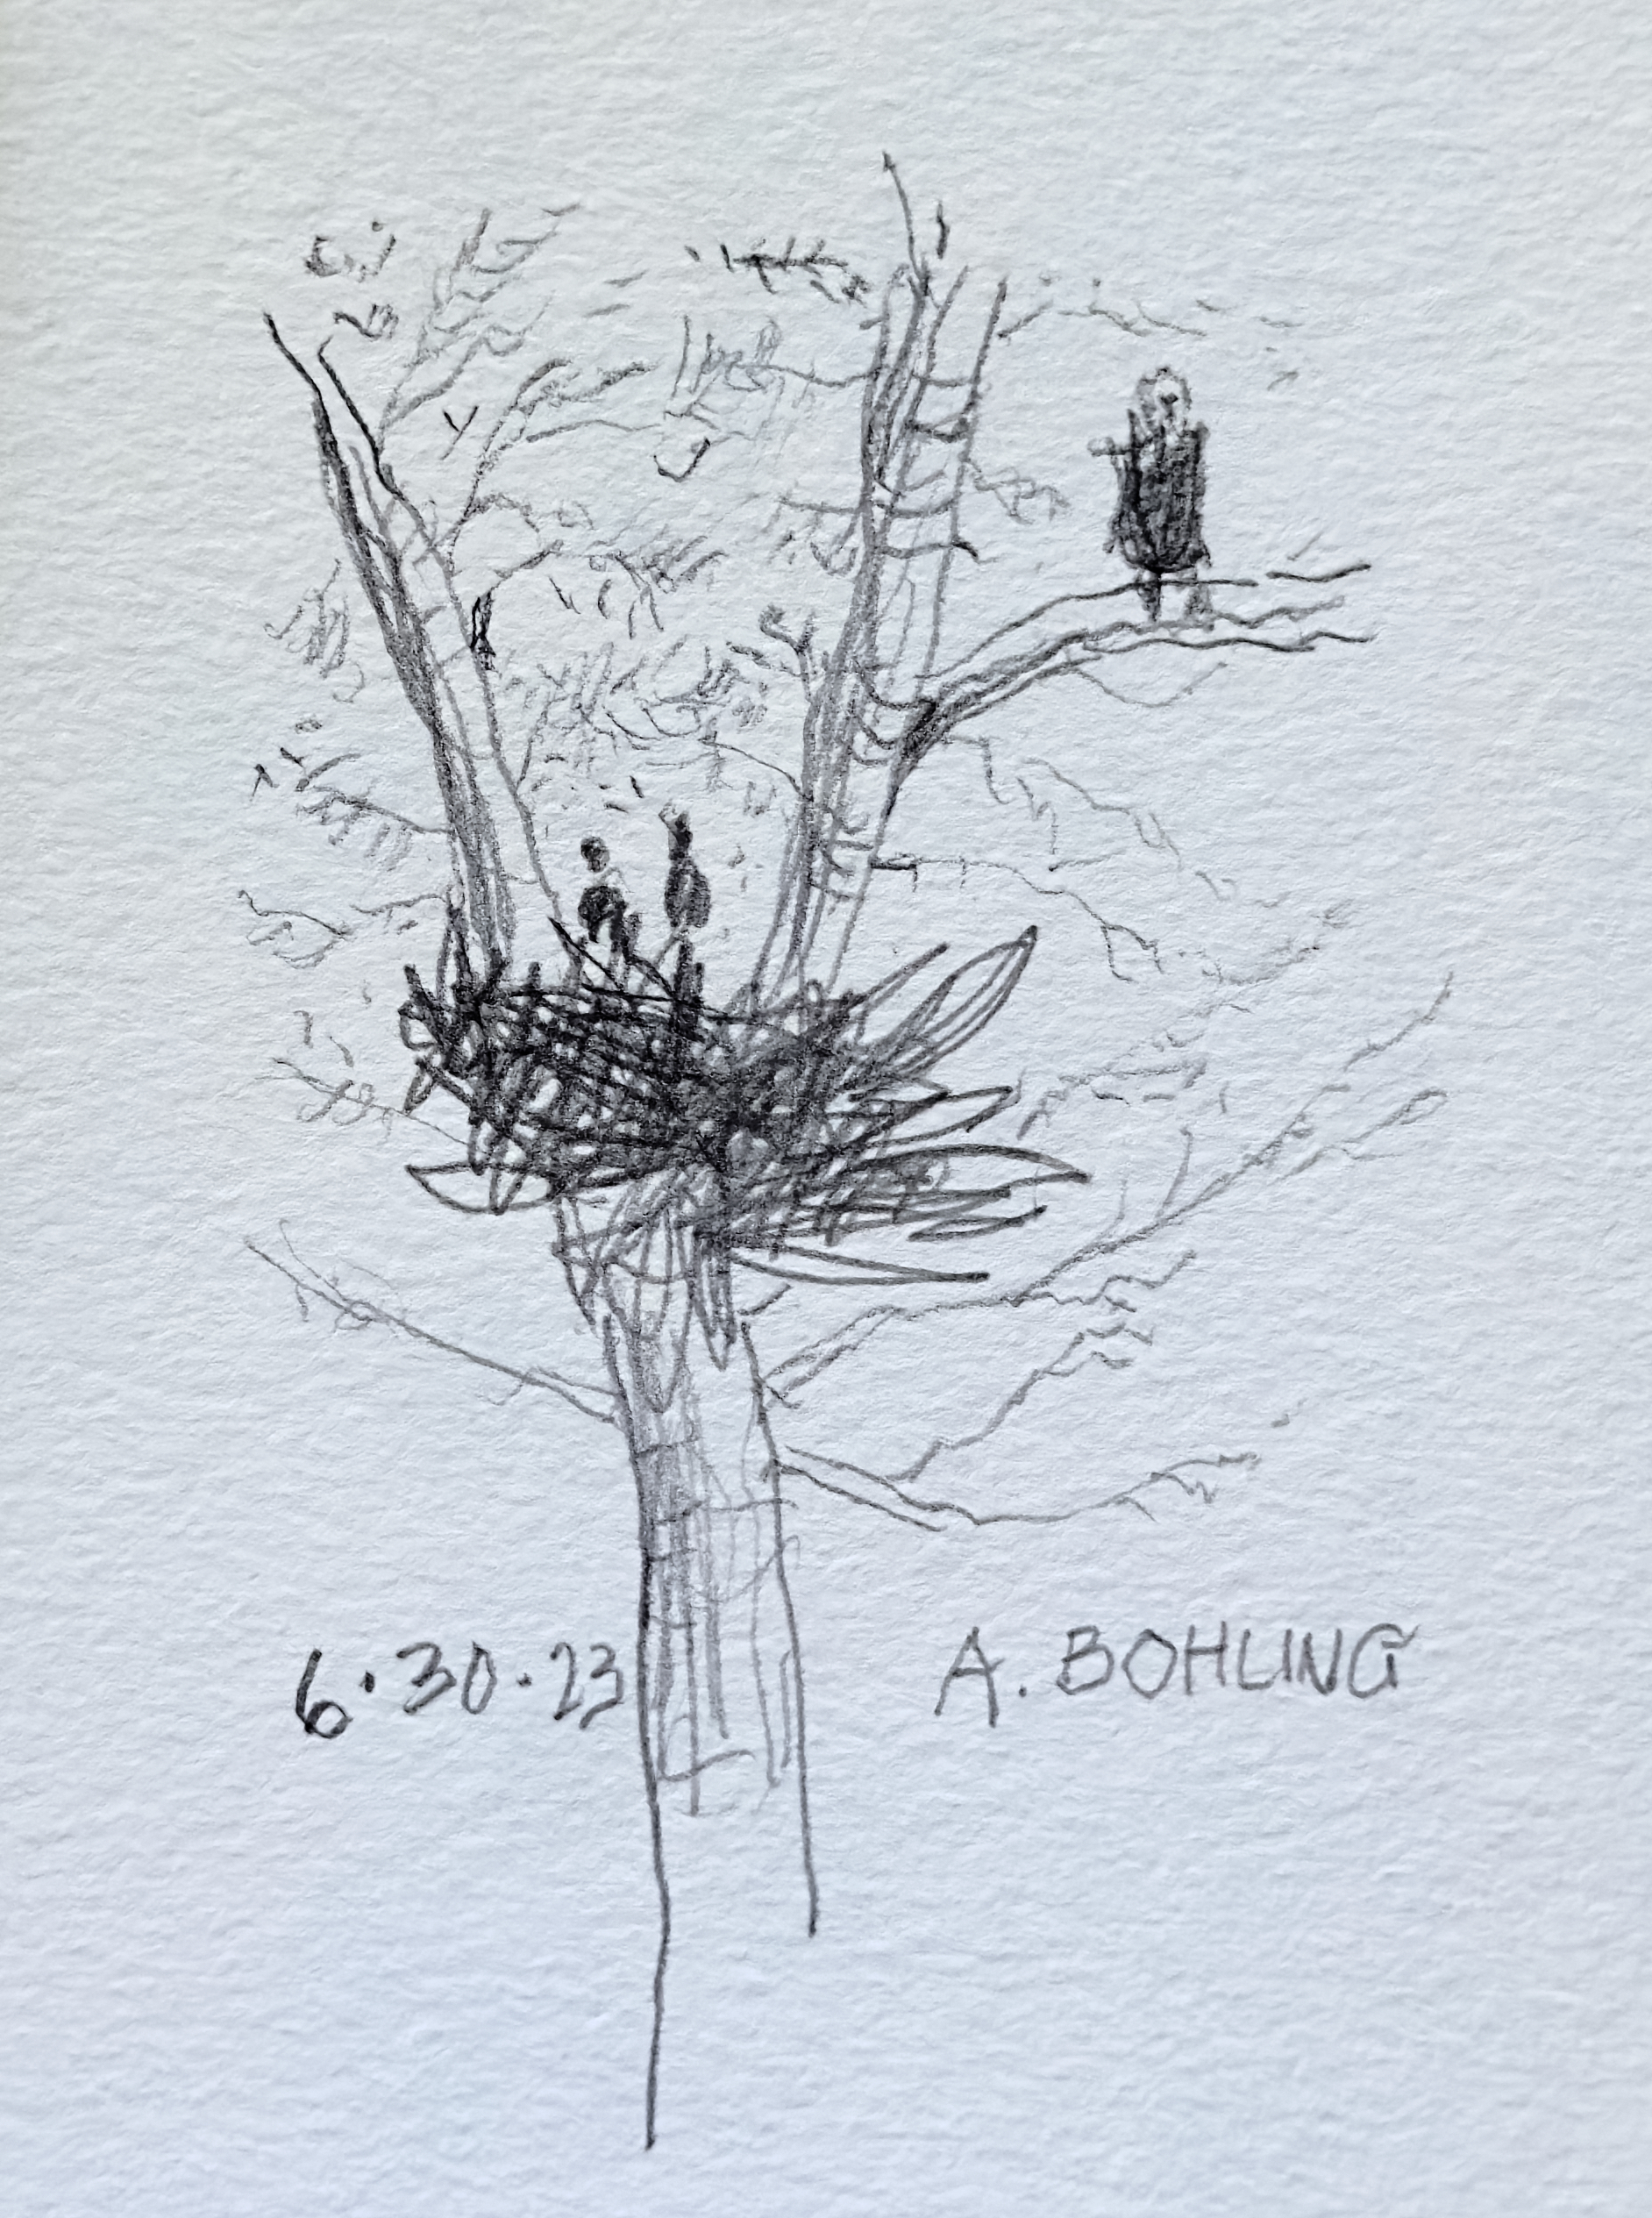 6·30·23
A. BOHLING